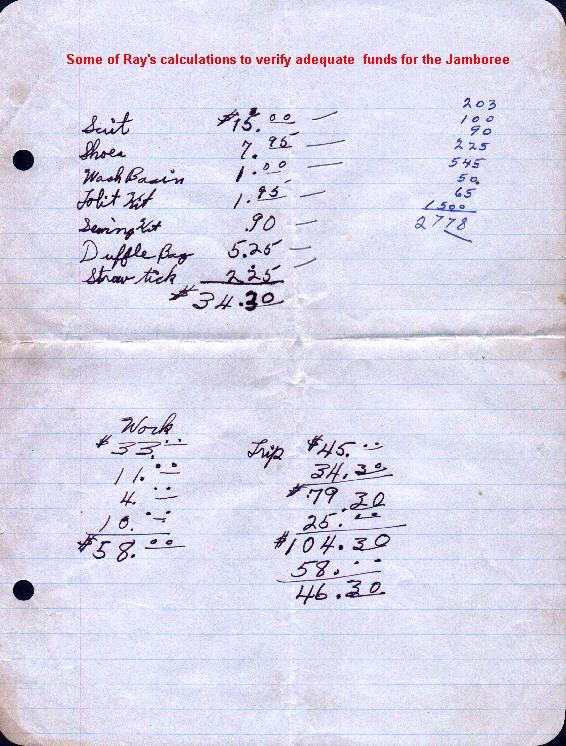 Some of Ray's calculations to verify adequate funds for the Jamboree
Suit $15.00 —
Shoes 7.95 —
Wash Basin 1.00 —
Tolit Kit 1.95 —
Sewing Kit .90 —
Duffle Bag 5.25 —
Straw tick 2.25 —
$34.30
203
100
90
225
545
50
65
1500
2778
Work
$33.00
11.00
4.00
10.00
$58.00
Trip $45.00
34.30
$79.30
25.00
$104.30
58.00
46.30